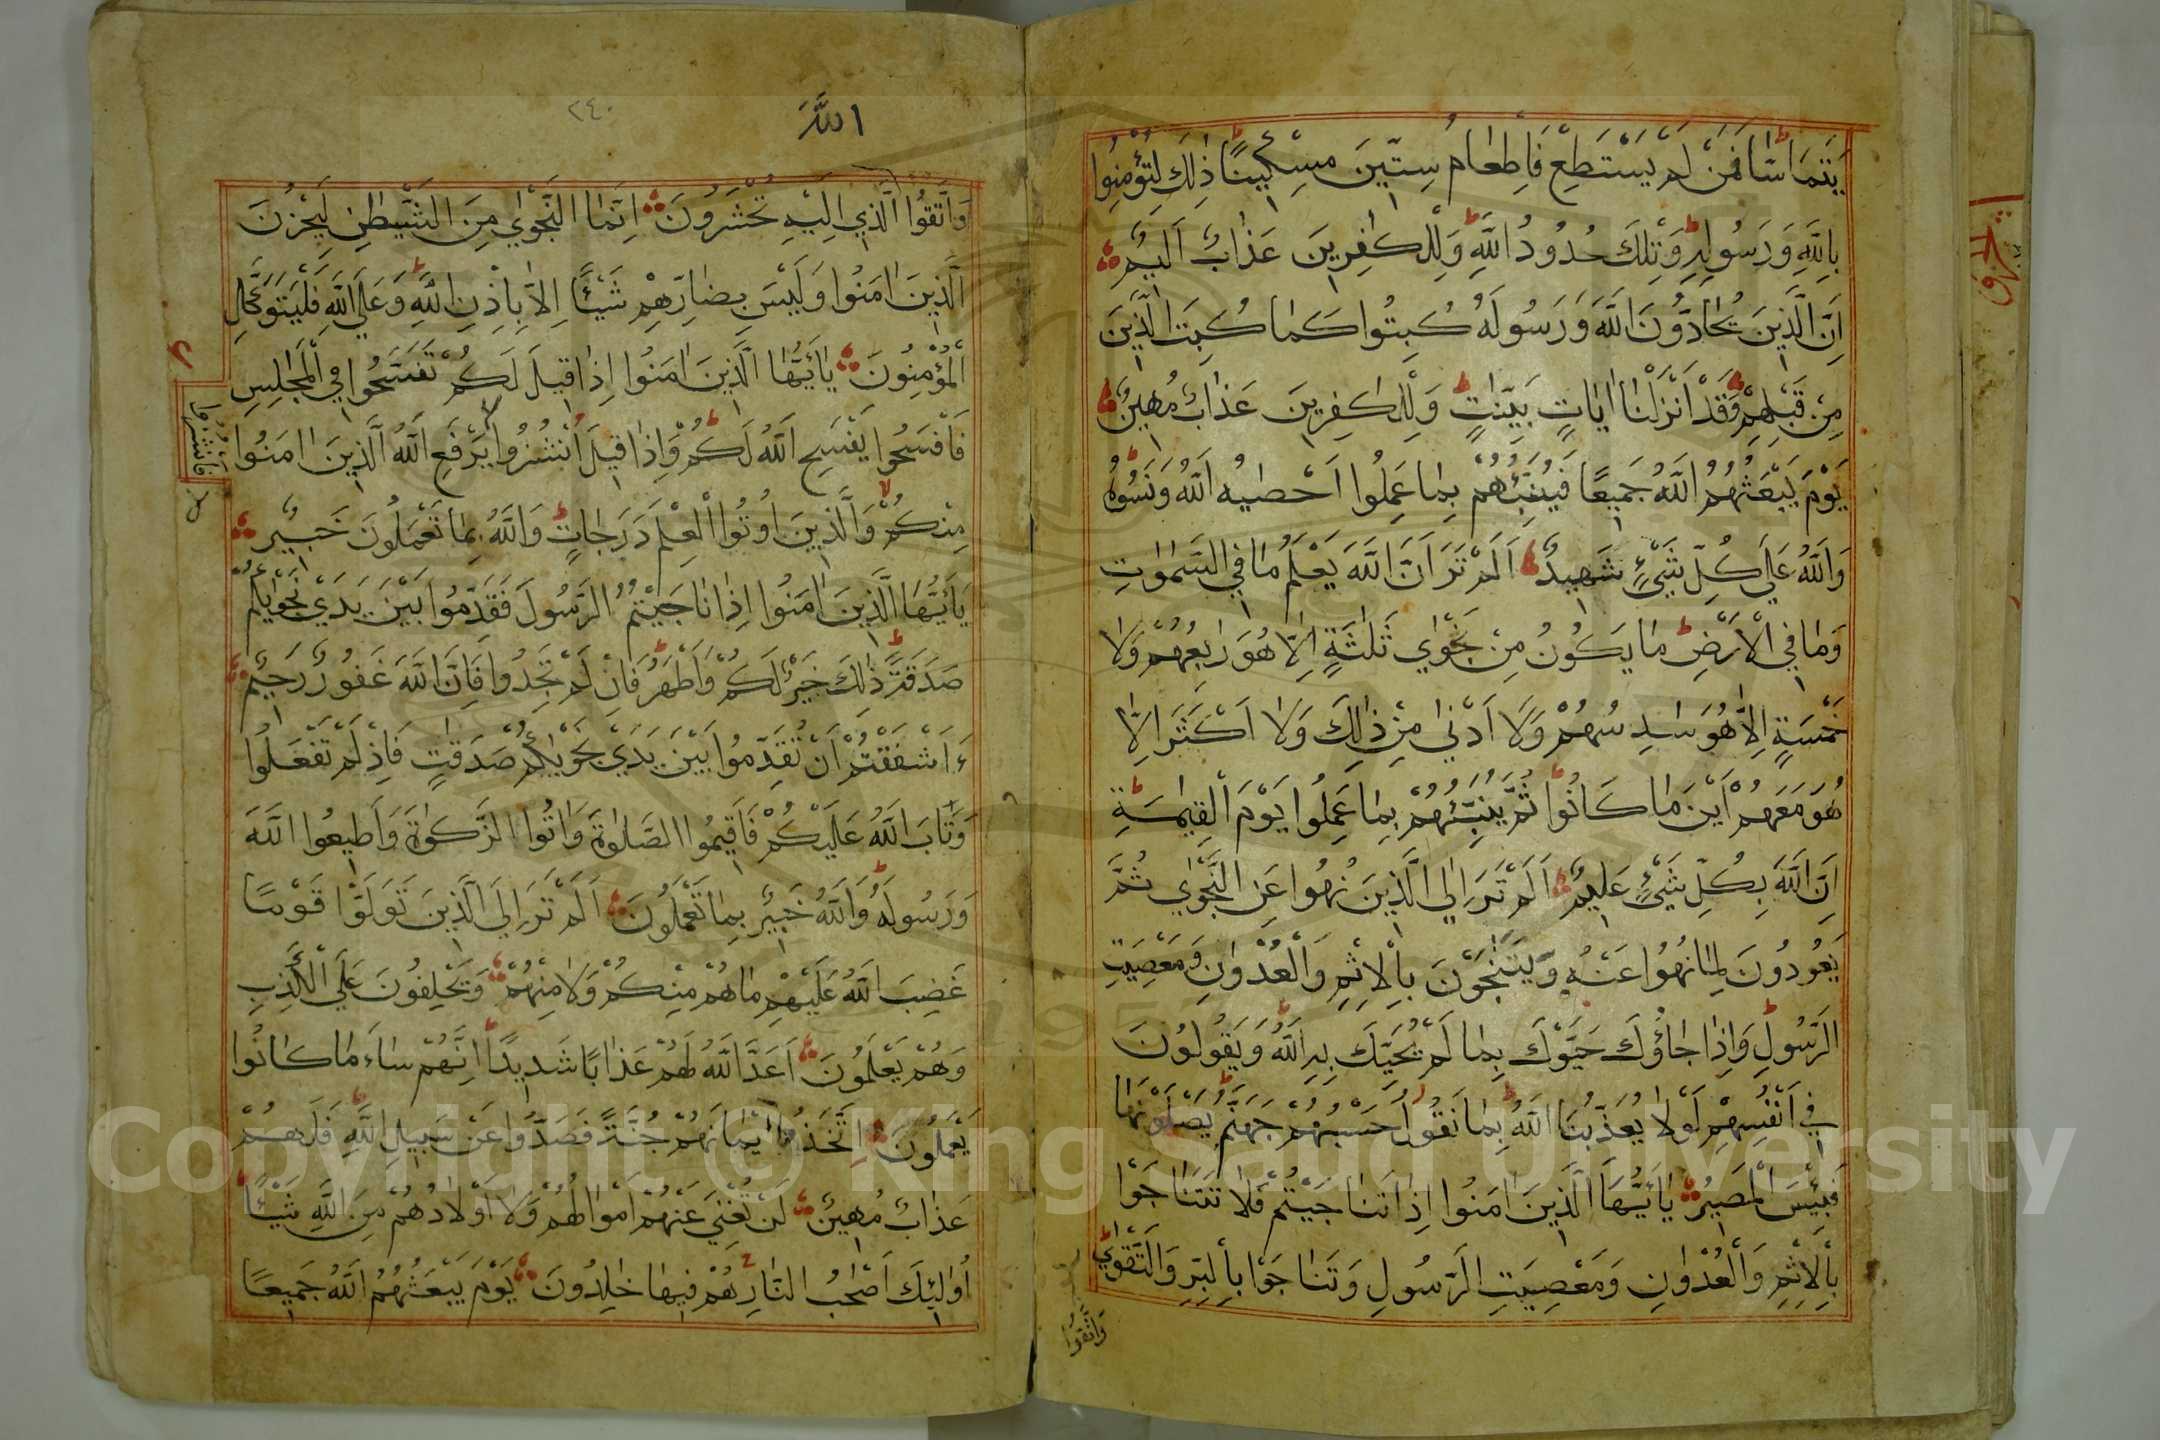 يَتَمَاسَّا فَمَنْ لَمْ يَسْتَطِعْ فَاِطْعَامُ سِتّٖينَ مِسْكٖينًا ذٰلِكَ لِتُؤْمِنُوا
بِاللّٰهِ وَرَسُولِهٖ وَتِلْكَ حُدُودُ اللّٰهِ وَلِلْكَافِرٖينَ عَذَابٌ اَلٖيمٌ
اِنَّ الَّذٖينَ يُحَادُّونَ اللّٰهَ وَرَسُولَهُ كُبِتُوا كَمَا كُبِتَ الَّذٖينَ
مِنْ قَبْلِهِمْ وَقَدْ اَنْزَلْنَا اٰيَاتٍ بَيِّنَاتٍ وَلِلْكَافِرٖينَ عَذَابٌ مُهٖينٌ
يَوْمَ يَبْعَثُهُمُ اللّٰهُ جَمٖيعًا فَيُنَبِّئُهُمْ بِمَا عَمِلُوا اَحْصٰيهُ اللّٰهُ وَنَسُوهُ
وَاللّٰهُ عَلٰى كُلِّ شَيْءٍ شَهٖيدٌ اَلَمْ تَرَ اَنَّ اللّٰهَ يَعْلَمُ مَا فِي السَّمٰوَاتِ
وَمَا فِي الْاَرْضِ مَا يَكُونُ مِنْ نَجْوٰى ثَلٰثَةٍ اِلَّا هُوَ رَابِعُهُمْ وَلَا
خَمْسَةٍ اِلَّا هُوَ سَادِسُهُمْ وَلَا اَدْنٰى مِنْ ذٰلِكَ وَلَا اَكْثَرَ اِلَّا
هُوَ مَعَهُمْ اَيْنَ مَا كَانُوا ثُمَّ يُنَبِّئُهُمْ بِمَا عَمِلُوا يَوْمَ الْقِيٰمَةِ
اِنَّ اللّٰهَ بِكُلِّ شَيْءٍ عَلٖيمٌ اَلَمْ تَرَ اِلَى الَّذٖينَ نُهُوا عَنِ النَّجْوٰى ثُمَّ
يَعُودُونَ لِمَا نُهُوا عَنْهُ وَيَتَنَٰجَوْنَ بِالْاِثْمِ وَالْعُدْوَانِ وَمَعْصِيَتِ
الرَّسُولِ وَاِذَا جَاؤُكَ حَيَّوْكَ بِمَا لَمْ يُحَيِّكَ بِهِ اللّٰهُ وَيَقُولُونَ
فٖي اَنْفُسِهِمْ لَوْلَا يُعَذِّبُنَا اللّٰهُ بِمَا نَقُولُ حَسْبُهُمْ جَهَنَّمُ يَصْلَوْنَهَا
فَبِئْسَ الْمَصٖيرُ يَا اَيُّهَا الَّذٖينَ اٰمَنُوا اِذَا تَنَاجَيْتُمْ فَلَا تَتَنَاجَوْا
بِالْاِثْمِ وَالْعُدْوَانِ وَمَعْصِيَتِ الرَّسُولِ وَتَنَاجَوْا بِالْبِرِّ وَالتَّقْوٰى
وَاتَّقُوا
الله
٢٤٠
وَاتَّقُوا الَّذٖي اِلَيْهِ تُحْشَرُونَ اِنَّمَا النَّجْوٰى مِنَ الشَّيْطٰنِ لِيَحْزُنَ
الَّذٖينَ اٰمَنُوا وَلَيْسَ بِضَارِّهِمْ شَيْئًا اِلَّا بِاِذْنِ اللّٰهِ وَعَلَى اللّٰهِ فَلْيَتَوَكَّلِ
الْمُؤْمِنُونَ يَا اَيُّهَا الَّذٖينَ اٰمَنُوا اِذَا قٖيلَ لَكُمْ تَفَسَّحُوا فِي الْمَجَالِسِ
فَافْسَحُوا يَفْسَحِ اللّٰهُ لَكُمْ وَاِذَا قٖيلَ انْشُزُوا يَرْفَعِ اللّٰهُ الَّذٖينَ اٰمَنُوا
فَانْشُزُوا
مِنْكُمْ وَالَّذٖينَ اُوتُوا الْعِلْمَ دَرَجَاتٍ وَاللّٰهُ بِمَا تَعْمَلُونَ خَبٖيرٌ
يَا اَيُّهَا الَّذٖينَ اٰمَنُوا اِذَا نَاجَيْتُمُ الرَّسُولَ فَقَدِّمُوا بَيْنَ يَدَيْ نَجْوٰيكُمْ
صَدَقَةً ذٰلِكَ خَيْرٌ لَكُمْ وَاَطْهَرُ فَاِنْ لَمْ تَجِدُوا فَاِنَّ اللّٰهَ غَفُورٌ رَحٖيمٌ
ءَاَشْفَقْتُمْ اَنْ تُقَدِّمُوا بَيْنَ يَدَيْ نَجْوٰيكُمْ صَدَقَاتٍ فَاِذْ لَمْ تَفْعَلُوا
وَتَابَ اللّٰهُ عَلَيْكُمْ فَاَقٖيمُوا الصَّلٰوةَ وَاٰتُوا الزَّكٰوةَ وَاَطٖيعُوا اللّٰهَ
وَرَسُولَهُ وَاللّٰهُ خَبٖيرٌ بِمَا تَعْمَلُونَ اَلَمْ تَرَ اِلَى الَّذٖينَ تَوَلَّوْا قَوْمًا
غَضِبَ اللّٰهُ عَلَيْهِمْ مَا هُمْ مِنْكُمْ وَلَا مِنْهُمْ وَيَحْلِفُونَ عَلَى الْكَذِبِ
وَهُمْ يَعْلَمُونَ اَعَدَّ اللّٰهُ لَهُمْ عَذَابًا شَدٖيدًا اِنَّهُمْ سَاءَ مَا كَانُوا
يَعْمَلُونَ اِتَّخَذُوا اَيْمَانَهُمْ جُنَّةً فَصَدُّوا عَنْ سَبٖيلِ اللّٰهِ فَلَهُمْ
عَذَابٌ مُهٖينٌ لَنْ تُغْنِيَ عَنْهُمْ اَمْوَالُهُمْ وَلَا اَوْلَادُهُمْ مِنَ اللّٰهِ شَيْئًا
اُولٰئِكَ اَصْحَابُ النَّارِ هُمْ فٖيهَا خَالِدُونَ يَوْمَ يَبْعَثُهُمُ اللّٰهُ جَمٖيعًا
Copyright © King Saud University